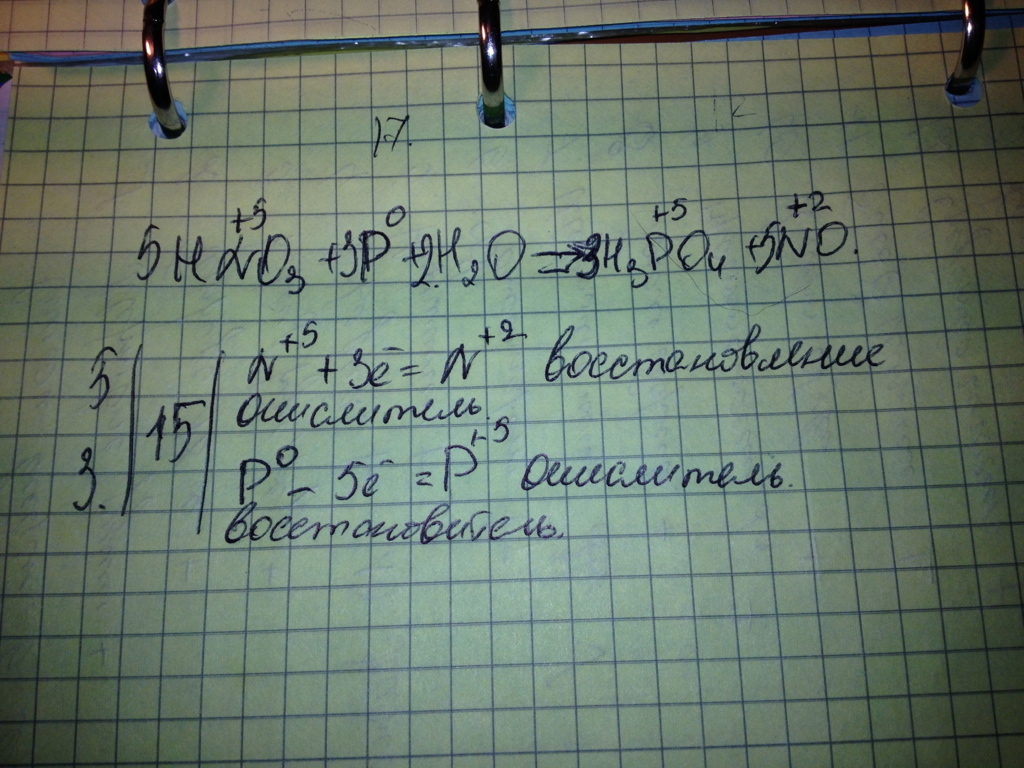 17.
5HN⁺⁵O₃ + 3P⁰ + 2H₂O → 3H₃P⁺⁵O₄ + 5N⁺²O.
5 | 15 | N⁺⁵ + 3ē = N⁺² восстановление
окислитель.
3. P⁰ – 5ē = P⁺⁵ окислитель.
восстановитель.